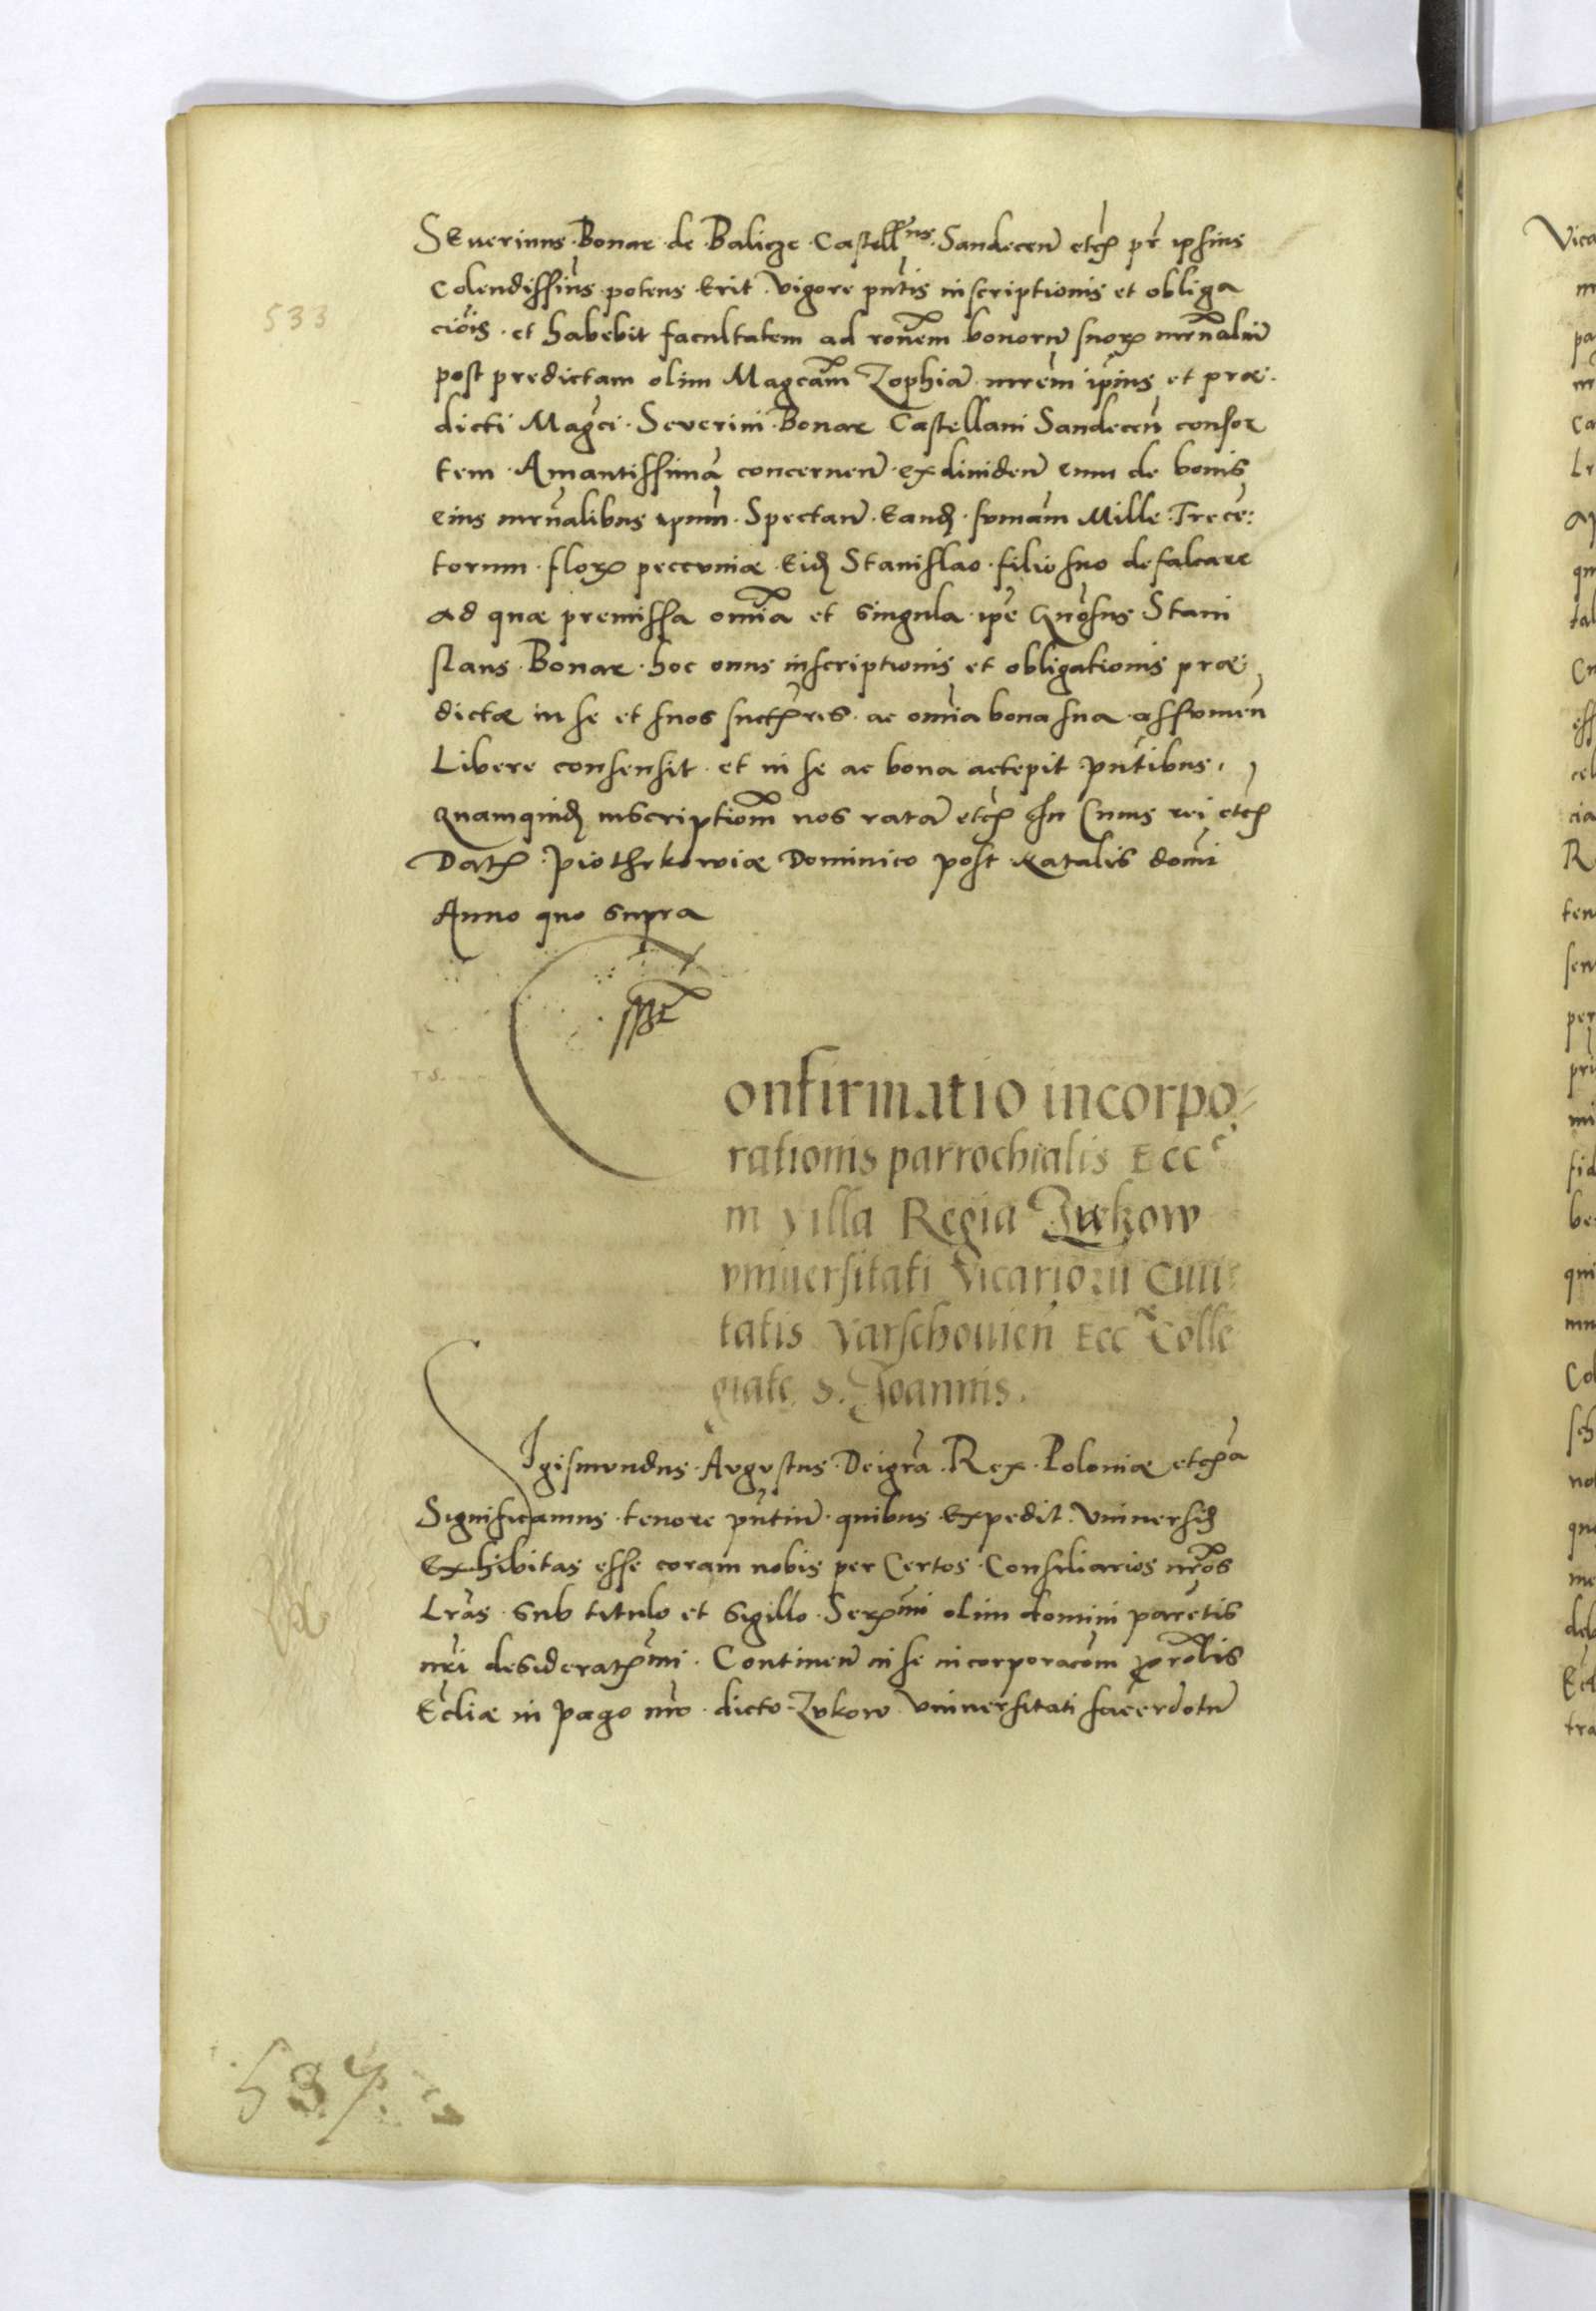 Seuerinus Bonar de Balicze Castell^nus Sandecen̄ etc̄ pr̄ ipsius
Colendissim̄us potens Erit Vigore pn̄tis inscriptionis et obliga
cio͞is et habebit facultatem ad ron̄em bonorum̄ suorꝝ mr̄nalium̄
post predictam olim Magcām Zophiā mrēm ip̄ius et præ:
dicti Magc̄i Severini Bonar Castellani Sandecen̄ consor
tem Amantissimā concernen̄ ex dividen̄ cum de bonis
eius mr̄nalibus ipsum̄ Spectan̄ Eandꝫ sum̄am Mille Trecē:
torum florꝝ peccuniæ Eidꝫ Stanislao filio suo defalcare
ad quæ premissa om̄ia et singula ip̄e Gn̄osus Stani
slaus Bonar hoc onus inscriptionis et obligationis præ:
dictæ in se et suos suctr̄es ac om̄ia bona sua assumen̄
Libere consensit et in se ac bona acсepit pn̄tibus
Quamquidꝫ inscriptiom̄ nos ratā etc̄ In Cuius rei etc̄
Datꝝ Piothrkowiæ Dominico post Natalis dom̄i
Anno quo supra
onfirmatio incorpo
rationis parrochialis Ecc^e
in villa Regia Zukow
vniuersitati vicariorū Ciui
tatis Varschouien̄ Ecc^æ Colle
giate S. Joannis.
Igismundus Augustus Dei gr̄a Rex Poloniæ etc̄a
Significamus tenore pn̄tium̄ quibus Expedit Vniuersidꝫ
Exhibitas esse coram nobis per Certos Consiliarios nr̄os
Lrās sub titulo et sigillo Ser^mi olim domini parētis
nr̄i desiderat^mi Continen̄ in se incorporacōm ꝑrōlis
Ecl̄iæ in pago nr̄o dicto Zukow Vniuersitati sacerdotū
533
537